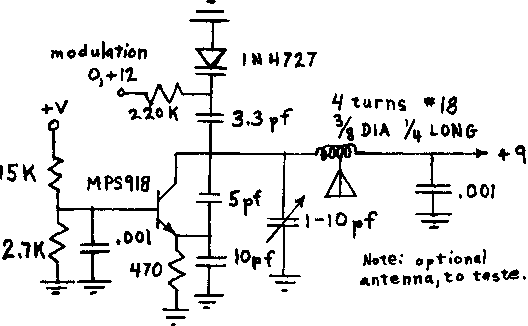 1N4727
modulation
0,+12
220K
3.3 pf
4 turns #18
3/8 DIA 1/4 LONG
+V
+9
15K
MPS918
5pf
.001
1-10pf
2.7K
.001
470
10pf
Note: optional
antenna, to taste.